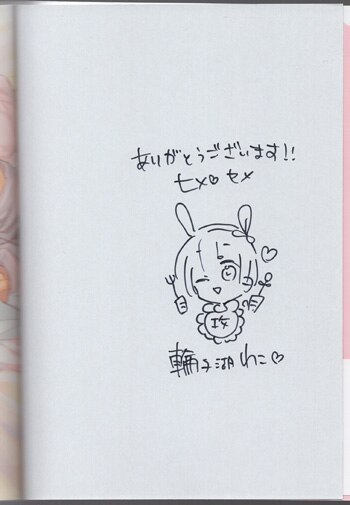 ありがとうございます!!
セメ♡セメ
攻
輪子湖わこ♡